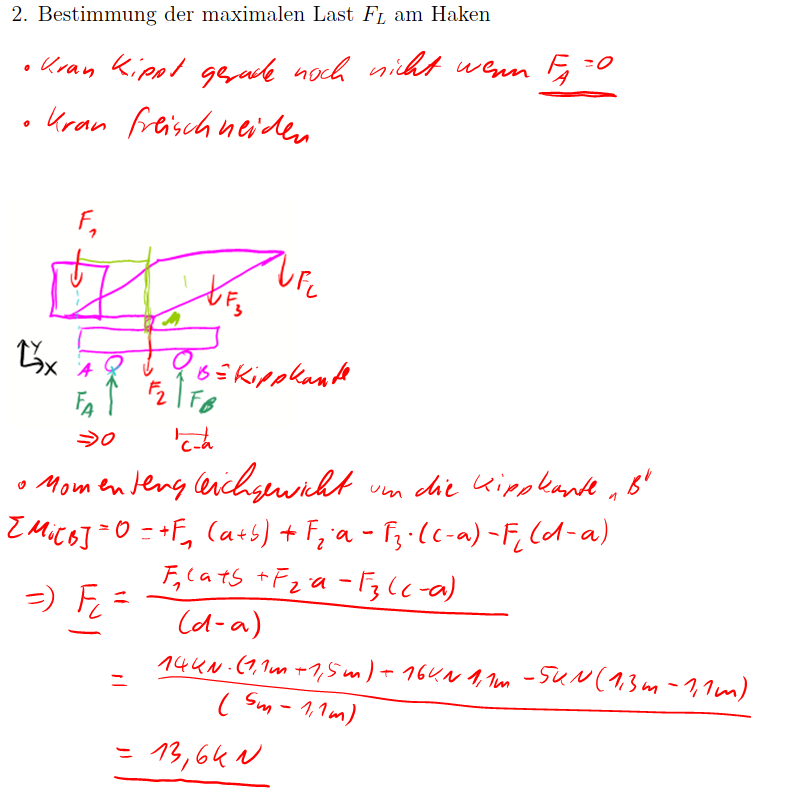 2. Bestimmung der maximalen Last F_L am Haken
• Kran kippt gerade noch nicht wenn F_A = 0
• Kran freischneiden
F_1
F_L
F_3
M
y
x
A
B ≙ Kippkante
F_A
F_2
F_B
⇒ 0
c-a
• Momentengleichgewicht um die Kippkante „B"
ΣM_i[B] = 0 = +F_1 (a+b) + F_2·a - F_3·(c-a) - F_L (d-a)
⇒) F_L = F_1(a+b + F_2·a - F_3(c-a) / (d-a)
= 14kN·(1,1m+1,5m) + 16kN 1,1m - 5kN(1,3m-1,1m) / (5m-1,1m)
= 13,6kN